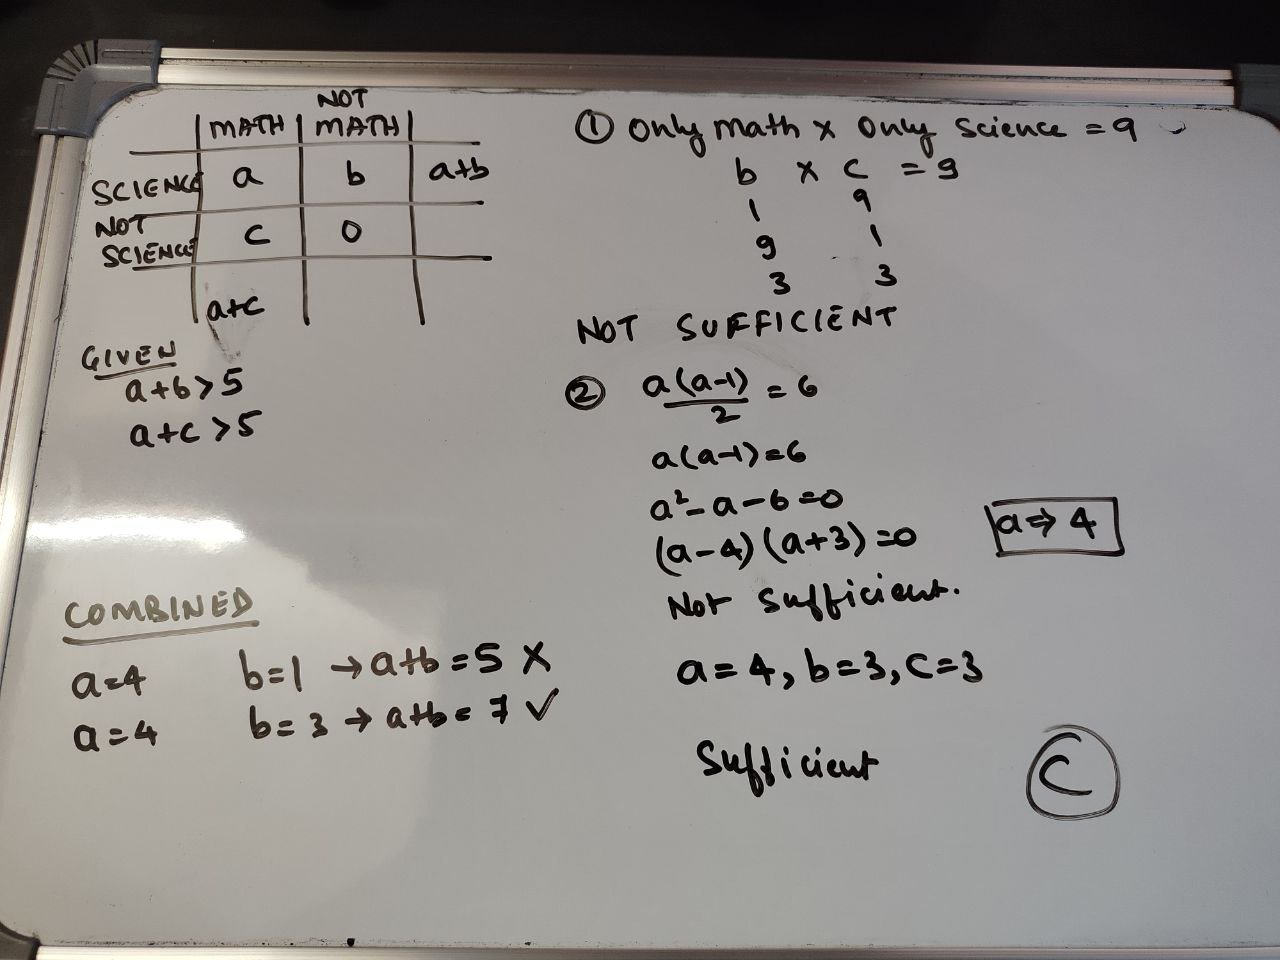 MATH NOT MATH
SCIENCE a b a+b
NOT SCIENCE c 0
a+c
GIVEN
a+b>5
a+c>5
① Only math x Only science = 9
b x c = 9
1 9
9 1
3 3
NOT SUFFICIENT
② a(a-1)/2 = 6
a(a-1)=6
a²-a-6=0
(a-4)(a+3)=0
a⇒4
Not Sufficient.
COMBINED
a=4 b=1 → a+b=5 X
a=4 b=3 → a+b=7 ✓
a=4, b=3, c=3
Sufficient
C